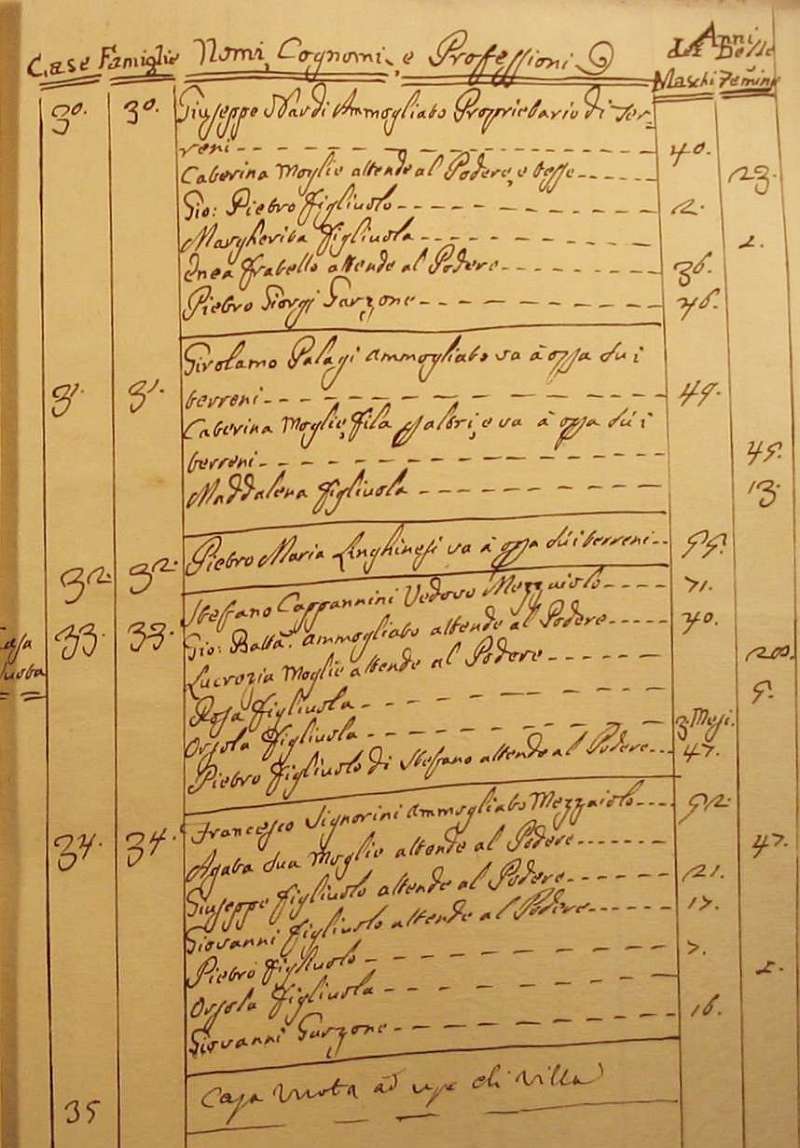 Case Famiglie Nomi, Cognomi, e Professioni Anni
dei Delle
Maschi Femine
30. 30. Giuseppe Nardi Ammogliato Proprietario di Ter=
reni 40.
Caterina Moglie attende al Podere, e tesse 23.
Gio: Pietro figliuolo 2.
Margherita figliuola
Enea fratello attende al Podere 36.
Pietro Giorgi Garzone 46.
Girolamo Palagi Ammogliato va à opra su i
31. 31. terreni 49.
Caterina Moglie, fila, e va à opra sù i
terreni 45.
Maddalena figliuola 13.
32. 32. Pietro Maria Linghinesi va à opra sù i terreni 55.
Stefano Cappannini Vedovo Mezzaiolo 71.
33. 33. Gio: Batta. Ammogliato attende al Podere 40.
Lucrezia Moglie attende al Podere
Rosa figliuola 5.
Orsola figliuola 3. Mesi.
Pietro figliuolo di Stefano attende al Podere 47.
Francesco Signorini Ammogliato Mezzaiolo 52.
34. 34. Agata sua Moglie attende al Podere 47.
Giuseppe figliuolo attende al Podere 21.
Giovanni figliuolo attende al Podere 17.
Pietro figliuolo 7.
Orsola figliuola
Giovanni Garzone 16.
35 Casa Vuota ad uso di Villa